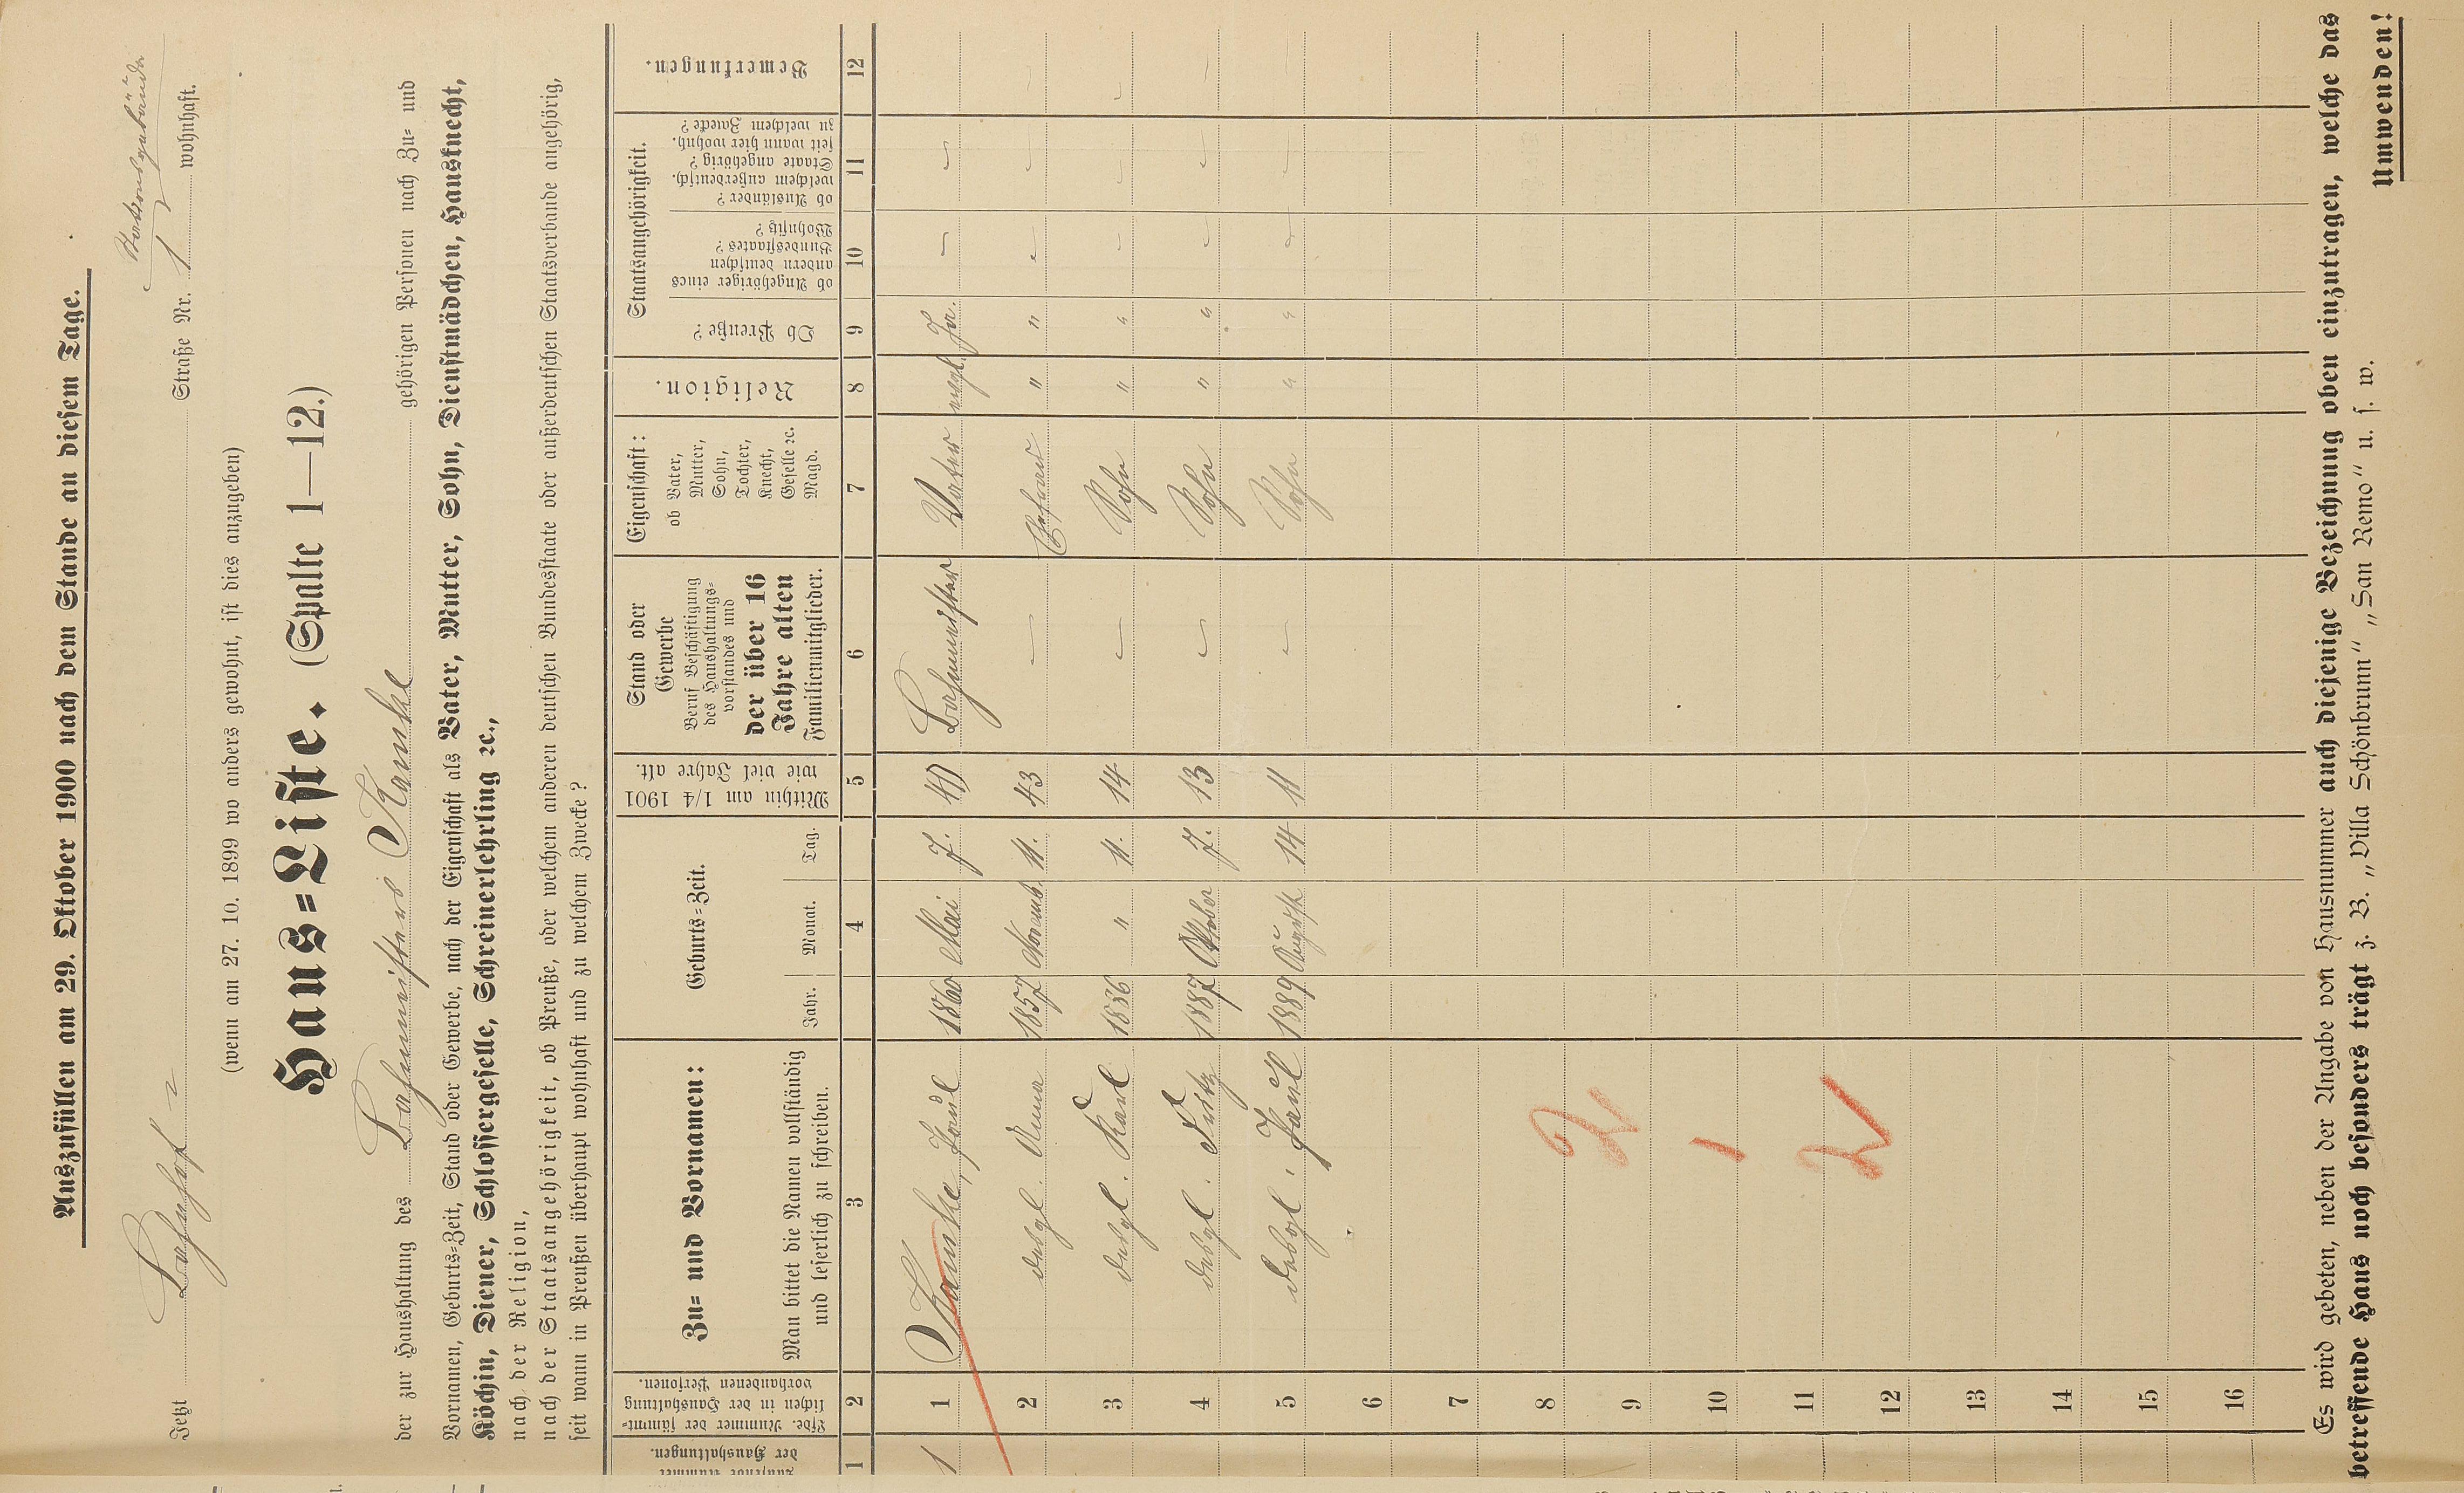 Auszufüllen am 29. Oktober 1900 nach dem Stande an diesem Tage.
Stationsgebäude
Jetzt Bahnhof Straße Nr. 1 wohnhaft.
(wenn am 27. 10. 1899 wo anders gewohnt, ist dies anzugeben)
Haus=Liste. (Spalte 1—12.)
der zur Haushaltung des Bahnmeisters Kamke gehörigen Personen nach Zu= und
Vornamen, Geburts=Zeit, Stand oder Gewerbe, nach der Eigenschaft als Vater, Mutter, Sohn, Dienstmädchen, Hausknecht,
Köchin, Diener, Schlossergeselle, Schreinerlehrling ꝛc.,
nach der Religion,
nach der Staatsangehörigkeit, ob Preuße, oder welchem anderen deutschen Bundesstaate oder außerdeutschen Staatsverbande angehörig,
seit wann in Preußen überhaupt wohnhaft und zu welchem Zwecke?
Laufende Nummer
der Haushaltungen.
Lfde. Nummer der sämmt=
lichen in der Haushaltung
vorhandenen Personen.
Zu= und Vornamen:
Man bittet die Namen vollständig
und leserlich zu schreiben.
Geburts=Zeit.
Jahr. Monat. Tag.
Mithin am 1/4 1901
wie viel Jahre alt.
Stand oder
Gewerbe
Beruf Beschäftigung
des Haushaltungs=
vorstandes und
der über 16
Jahre alten
Familienmitglieder.
Eigenschaft:
ob Vater,
Mutter,
Sohn,
Tochter,
Knecht,
Geselle ꝛc.
Magd.
Religion.
Staatsangehörigkeit.
Ob Preuße?
ob Angehöriger eines
andern deutschen
Bundesstaates?
Wohnsitz?
ob Ausländer?
welchem außerdeutsch.
Staate angehörig?
seit wann hier wohnh.
zu welchem Zwecke?
Bemerkungen.
1 2 3 4 5 6 7 8 9 10 11 12
1 1 Kamke, Paul 1860 Mai 7. 40 Bahnmeister Vater evgl. Ja. — —
2 desgl. Anna 1857 Novemb. 11. 43 — Ehefrau " " — —
3 desgl. Karl 1886 " 11. 14 — Sohn " " — —
4 desgl. Fritz 1887 Oktober 7. 13 — Sohn " " — —
5 desgl. Paul 1889 August 14 11 — Sohn " " — —
6
7
8 2
9
10 1
11 2
12
13
14
15
16
Es wird gebeten, neben der Angabe von Hausnummer auch diejenige Bezeichnung oben einzutragen, welche das
betreffende Haus noch besonders trägt z. B. „Villa Schönbrunn“ „San Remo“ u. s. w.
Umwenden!